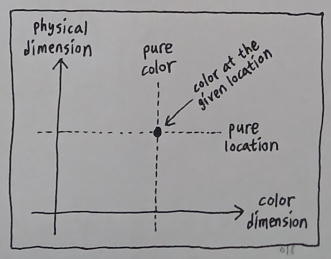 physical
dimension
pure
color
color at the
given location
pure
location
color
dimension